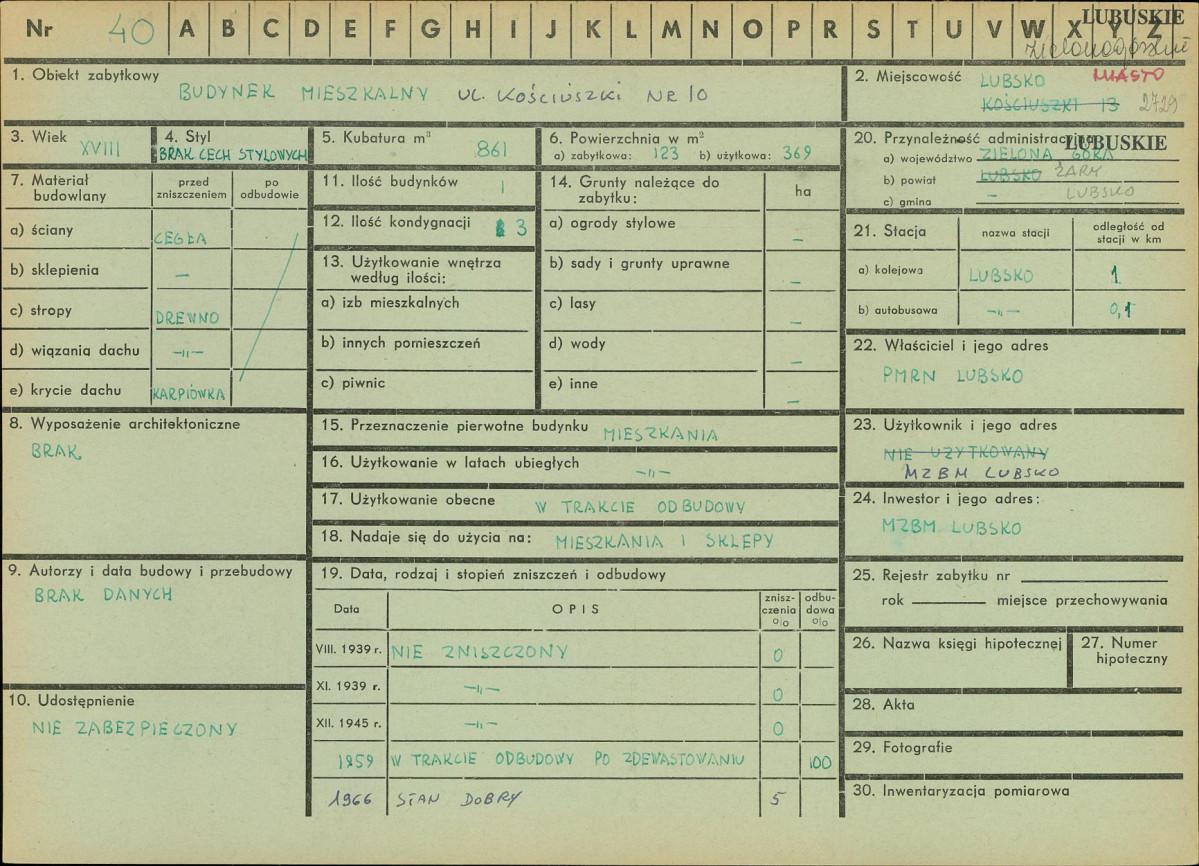 Nr 40 A B C D E F G H I J K L M N O P R S T U V W X Y Z
LUBUSKIE
zielonogórskie
1. Obiekt zabytkowy
BUDYNEK MIESZKALNY UL. KOŚCIUSZKI NR 10
2. Miejscowość LUBSKO MIASTO
KOŚCIUSZKI 13 2729
3. Wiek XVIII
4. Styl
BRAK CECH STYLOWYCH
5. Kubatura m³
861
6. Powierzchnia w m²
a) zabytkowa: 123 b) użytkowa: 369
7. Materiał budowlany
przed zniszczeniem
po odbudowie
a) ściany CEGŁA
b) sklepienia —
c) stropy DREWNO
d) wiązania dachu —„—
e) krycie dachu KARPIÓWKA
8. Wyposażenie architektoniczne
BRAK
9. Autorzy i data budowy i przebudowy
BRAK DANYCH
10. Udostępnienie
NIE ZABEZPIECZONY
11. Ilość budynków 1
12. Ilość kondygnacji 3
13. Użytkowanie wnętrza
według ilości:
a) izb mieszkalnych
b) innych pomieszczeń
c) piwnic
14. Grunty należące do
zabytku:
ha
a) ogrody stylowe —
b) sady i grunty uprawne —
c) lasy —
d) wody —
e) inne —
15. Przeznaczenie pierwotne budynku MIESZKANIA
16. Użytkowanie w latach ubiegłych —„—
17. Użytkowanie obecne W TRAKCIE ODBUDOWY
18. Nadaje się do użycia na: MIESZKANIA I SKLEPY
19. Data, rodzaj i stopień zniszczeń i odbudowy
Data OPIS znisz-czenia % odbu-dowa %
VIII. 1939 r. NIE ZNISZCZONY 0
XI. 1939 r. —„— 0
XII. 1945 r. —„— 0
1959 W TRAKCIE ODBUDOWY PO ZDEWASTOWANIU 100
1966 STAN DOBRY 5
20. Przynależność administracyjna
LUBUSKIE
a) województwo ZIELONA GÓRA
b) powiat LUBSKO ŻARY
c) gmina — LUBSKO
21. Stacja
nazwa stacji
odległość od stacji w km
a) kolejowa LUBSKO 1
b) autobusowa —„— 0,1
22. Właściciel i jego adres
PMRN LUBSKO
23. Użytkownik i jego adres
NIE UŻYTKOWANY
MZBM LUBSKO
24. Inwestor i jego adres:
MZBM LUBSKO
25. Rejestr zabytku nr
rok miejsce przechowywania
26. Nazwa księgi hipotecznej
27. Numer
hipoteczny
28. Akta
29. Fotografie
30. Inwentaryzacja pomiarowa